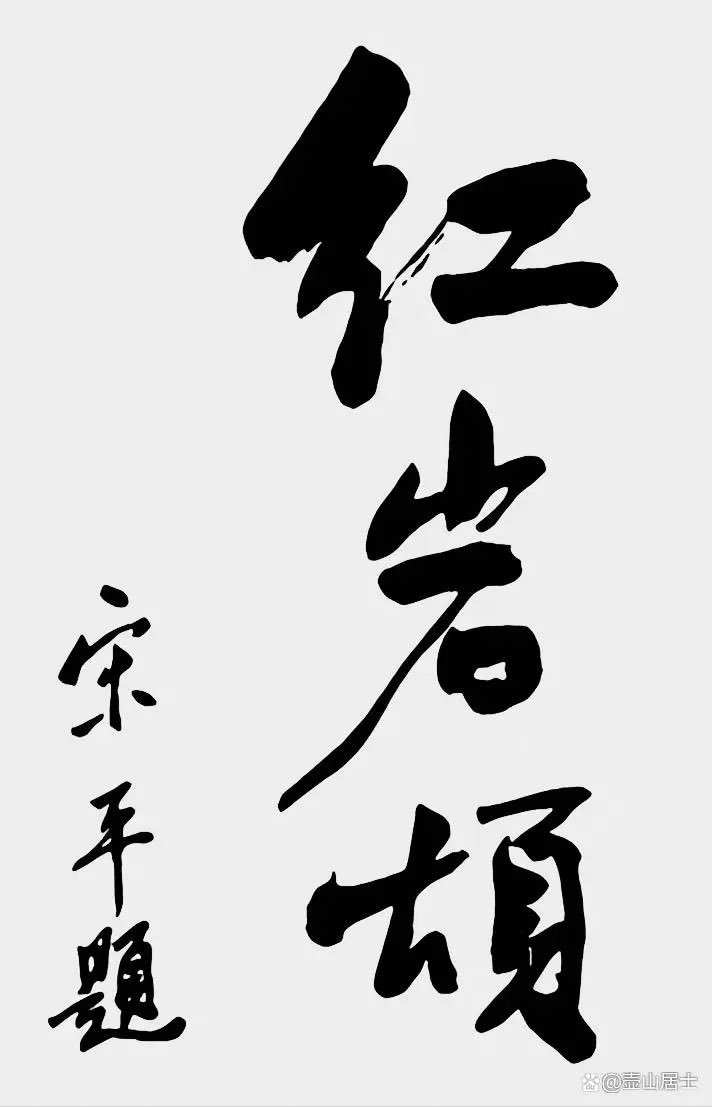 红岩頌
宋平題
@壶山居士